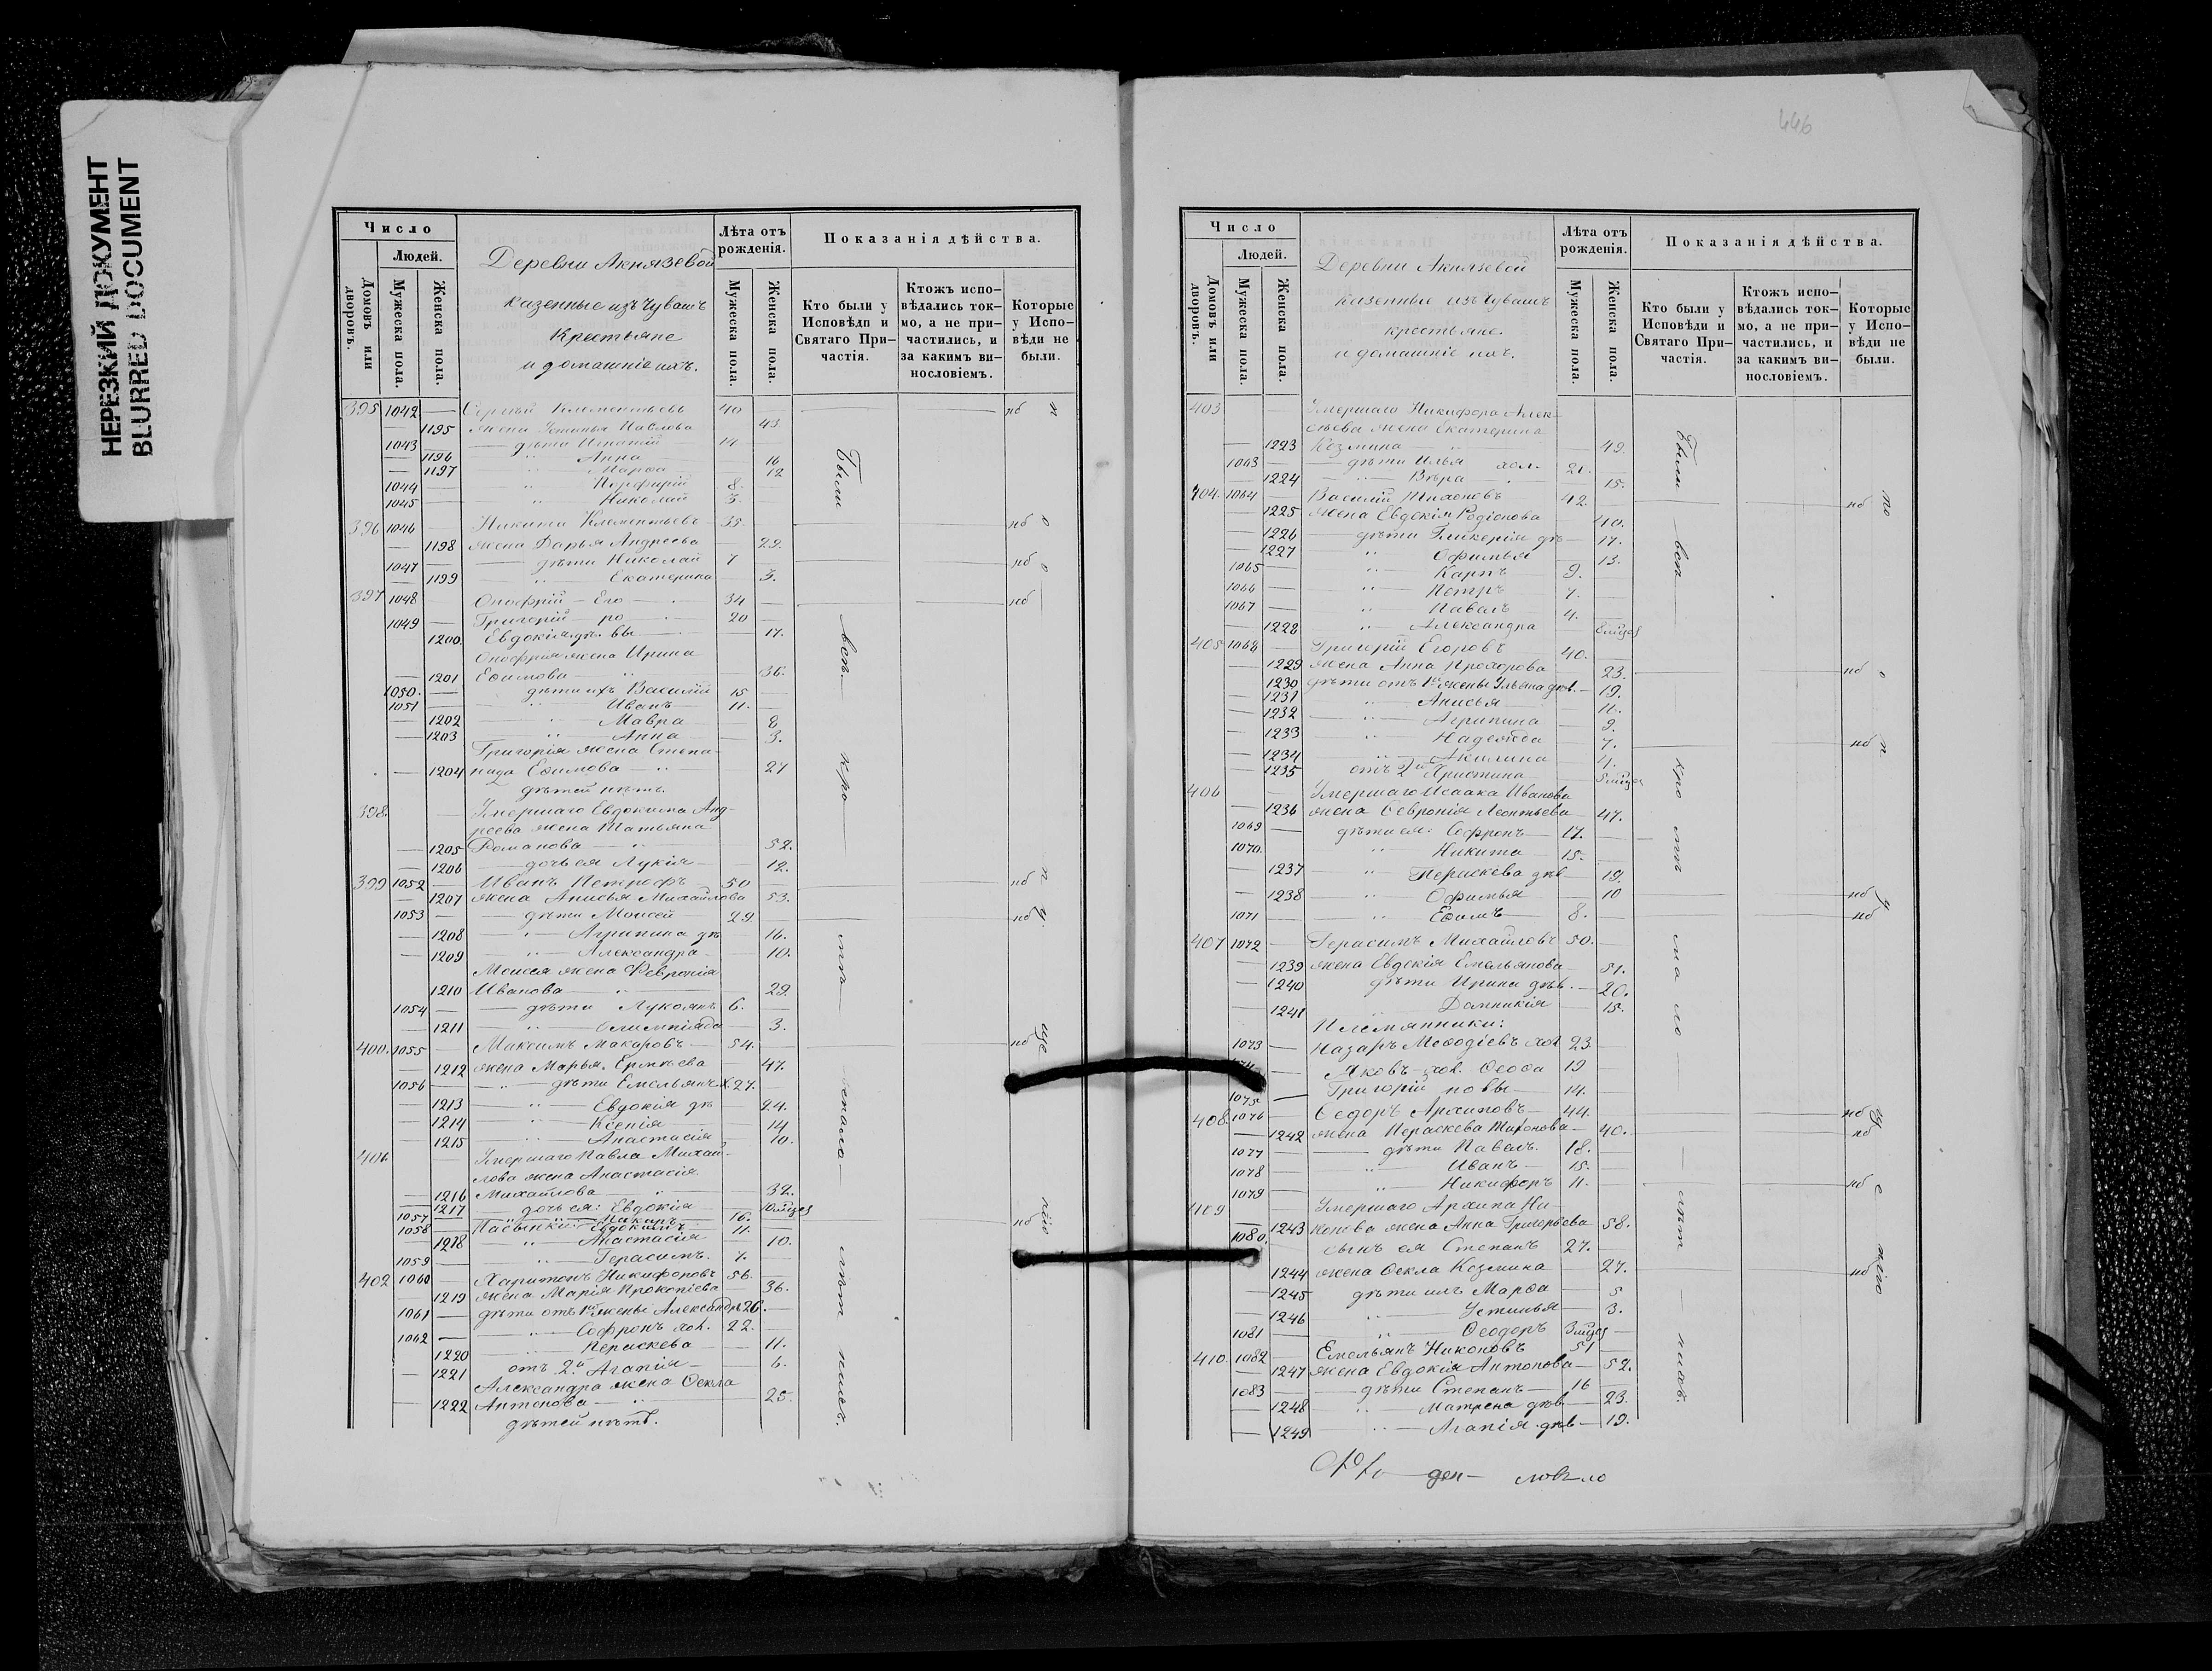 НЕРЕЗКИЙ ДОКУМЕНТ
BLURRED DOCUMENT
Число
Людей.
Домовъ или дворовъ.
Мужеска пола.
Женска пола.
Деревни Акнязевой
казенные изъ Чувашъ
Крестьяне
и домашніе ихъ.
Лѣта отъ рожденія.
Мужеска пола.
Женска пола.
Показанія дѣйства.
Кто были у Исповѣди и Святаго Причастія.
Ктожъ исповѣдались токмо, а не причастились, и за какимъ винословіемъ.
Которые у Исповѣди не были.
395 1042 — Сергѣй Клементьевъ 40 нб
— 1195 жена Устинья Павлова 43
1043 — дѣти Игнатій 14
— 1196 " Анна 16
— 1197 " Марѳа 12
1044 — " Порфирій 8.
1045 — " Николай 3.
396 1046 — Никита Клементьевъ 35 нб
— 1198 жена Дарья Андреева 29.
1047 — дѣти Николай 7 нб
— 1199 " Екатерина 3.
397 1048 — Онофрій — Его 34 нб
1049 — Григорій — ро 20
1200 Евдокія дѣ. вы 17.
Онофрія жена Ирина
— 1201 Ефимова " 36.
1050. — дѣти ихъ Василій 15
1051 — " Иванъ 11.
— 1202 " Мавра 8
— 1203 " Анна 3.
Григорія жена Степа-
— 1204 нида Ефимова " 27
дѣтей нѣтъ.
398. Умершаго Евдокима Анд-
реева жена Татьяна
— 1205 Романова " 52.
— 1206 дочь ея Лукія 12.
399 1052 — Иванъ Петровъ 50 нб
— 1207 жена Анисья Михайлова 53.
1053 — дѣти Моисей 29. нб
— 1208 " Агрипина дѣ 16.
— 1209 " Александра 10.
Моисея жена Февронія
1210 Иванова " 29.
1054 — дѣти Лукоянъ 6.
— 1211 " Олимпіада 3.
400. 1055 — Максимъ Макаровъ 54. нб
— 1212 жена Марья Ермѣева 47.
1056 — " дѣти Емельянъ х. 27.
— 1213 " Евдокія дѣ 24.
— 1214 " Ксенія 14
— 1215 " Анастасія 10.
401. Умершаго Павла Михай-
лова жена Анастасія
— 1216 Михайлова " 32.
— 1217 дочь ея: Евдокія
1057 — 16.
1058 — Пасынки: Евдокимъ 11. нб
— 1218 " Анастасія 10.
1059 — " Герасимъ. 7.
402 1060 — Харитонъ Никифоровъ 56.
— 1219 жена Марія Прокопіева 36.
1061 — дѣти отъ 1й жены Александръ 26.
1062 — " Софронъ хол. 22.
1220 " Пераскева 11.
— 1221 отъ 2й Агапія 6.
Александра жена Ѳекла
— 1222 Антонова " 25.
дѣтей нѣтъ.
Были всѣ кро
446
Число
Людей.
Домовъ или дворовъ.
Мужеска пола.
Женска пола.
Деревни Акнязевой
казенные изъ Чувашъ
крестьяне.
и домашніе ихъ.
Лѣта отъ рожденія.
Мужеска пола.
Женска пола.
Показанія дѣйства.
Кто были у Исповѣди и Святаго Причастія.
Ктожъ исповѣдались токмо, а не причастились, и за какимъ винословіемъ.
Которые у Исповѣди не были.
403 Умершаго Никифора Алек-
сѣева жена Екатерина
— 1223 Козмина 49.
1063 — дѣти Илья хол. 21.
— 1224 " Вѣра 15.
404. 1064 — Василій Тихоновъ 42. нб
— 1225 жена Евдокія Родіонова 40.
— 1226 дѣти Гликерія дѣ 17.
— 1227 " Офимья 13.
1065 " Карпъ 9.
1066 — " Петръ 7.
1067 — " Павелъ 4.
— 1228 " Александра
405 1068 — Григорій Егоровъ 40.
— 1229 жена Анна Прохорова 23. нб
1230 дѣти отъ 1й жены Ульяна дѣв. 19.
— 1231 " Анисья 11.
— 1232 " Агрипина 9.
— 1233 " Надежда 7. нб
— 1234 " Акилина 4.
— 1235 отъ 2й Христина
406 Умершаго Исаака Иванова
— 1236 жена Ѳевронія Леонтьева 47.
1069 — дѣти ея: Софронъ 17.
1070. " Никита 15.
— 1237 " Пераскева дѣв 19.
— 1238 " Офимья 10 нб
1071 " Ефимъ 8. нб
407 1072 — Герасимъ Михайловъ 50.
— 1239 жена Евдокія Емельянова 51.
— 1240 дѣти Ирина дѣв. 20.
— 1241 " Домникія 15.
Племянники:
1073 — Назаръ Меѳодіевъ хол 23.
— Яковъ хол. Ѳеоѳа 19
1075 — Григорій новы 14.
408. 1076 — Ѳедоръ Архиповъ 44. нб
— 1242 жена Пераскева Тихонова 40. нб
1077 — дѣти Павелъ. 18.
1078 — " Иванъ 15.
1079 — " Никифоръ 11. нб
409 Умершаго Архипа Ни-
1243 конова жена Анна Григорьева 58.
1080. сынъ ея Степанъ 27.
— 1244 жена Ѳекла Козмина 27. нб
— 1245 дѣти ихъ Марѳа 5
— 1246 " Устинья 3.
1081 — " Ѳеодоръ
410. 1082 — Емельянъ Никоновъ 51
— 1247 жена Евдокія Антонова 52.
1083 — дѣти Степанъ 16
— 1248 " Матрена дѣв 23.
— 1249 " Агапія дѣв 19.
Были всѣ кро мѣ ма ло лѣт нихъ.